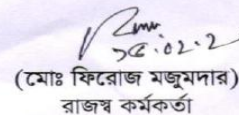 (মোঃ ফিরোজ মজুমদার)
রাজস্ব কর্মকর্তা